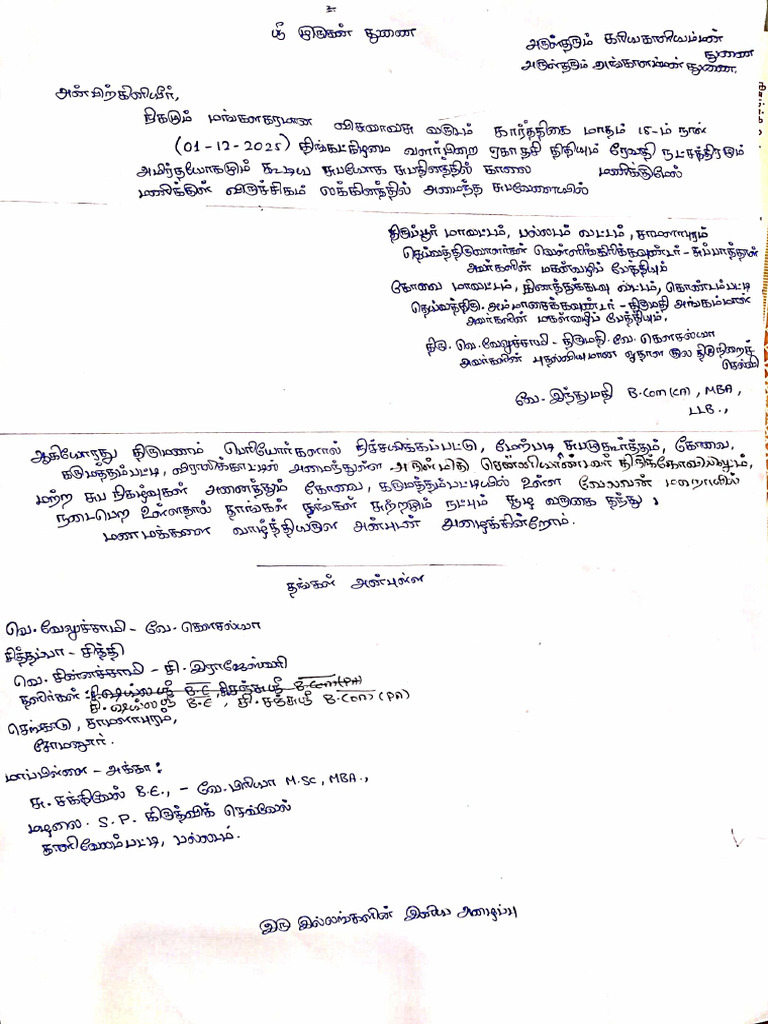 உ
ஸ்ரீ முருகன் துணை
அருள்தரும் கரியகாளியம்மன் துணை
அருள்தரும் அங்காளம்மன் துணை.
அன்பிற்கினியீர்,
நிகழும் மங்களகரமான விசுவாவசு வருடம் கார்த்திகை மாதம் 15-ம் நாள்
(01-12-2025) திங்கட்கிழமை வளர்பிறை ஏகாதசி திதியும் ரேவதி நட்சத்திரமும்
அமிர்தயோகமும் கூடிய சுபயோக சுபதினத்தில் காலை மணிக்குமேல்
மணிக்குள் விருச்சிகம் லக்கினத்தில் அமைந்த சுபவேளையில்
திருப்பூர் மாவட்டம், பல்லடம் வட்டம், சாமளாபுரம்
தெய்வத்திருவாளர்கள் வெள்ளிங்கிரிக்கவுண்டர் - சுப்பாத்தாள்
அவர்களின் மகன்வழிப் பேத்தியும்
கோவை மாவட்டம், கிணத்துக்கடவு வட்டம், கொண்டம்பட்டி
தெய்வத்திரு. அம்மாசைக்கவுண்டர் - திருமதி அங்கம்மாள்
அவர்களின் மகள்வழிப் பேத்தியும்,
திரு. வெ. வேலுச்சாமி - திருமதி. வே. கௌசல்யா
அவர்களின் புதல்வியுமான குல திருநிறைச்
செல்வி
வே. இந்துமதி B.Com(CA), MBA,
LLB.,
ஆகியோரது திருமணம் பெரியோர்களால் நிச்சயிக்கப்பட்டு, மேற்படி சுபமுகூர்த்தம், கோவை,
கடுமத்தம்பட்டி, விராலிக்காட்டில் அமைந்துள்ள அருள்மிகு சென்னியாண்டவர் திருக்கோவிலிலும்,
மற்ற சுப நிகழ்வுகள் அனைத்தும் கோவை, கருமத்தம்பட்டியில் உள்ள வேலவன் மஹாலில்
நடைபெற உள்ளதால் தாங்கள் தங்கள் சுற்றமும் நட்பும் சூழ வருகை தந்து
மணமக்களை வாழ்த்தியருள அன்புடன் அழைக்கின்றோம்.
தங்கள் அன்புள்ள
வெ. வேலுச்சாமி - வே. கௌசல்யா
சித்தப்பா - சித்தி
வெ. சின்னச்சாமி - சி. இராஜேஸ்வரி
B.E, B.Com(PA)
B.E, சி. சஞ்சுஸ்ரீ B.Com(PA)
செங்காடு, சாமளாபுரம்,
சோமனூர்.
மாப்பிள்ளை - அக்கா:
சு. சக்திவேல் B.E., - வே. பிரியா M.Sc, MBA.,
மழலை. S.P. கிருத்விக் செவ்வேல்
தாளிவேலம்பட்டி, பல்லடம்.
இரு இல்லங்களின் இனிய அழைப்பு